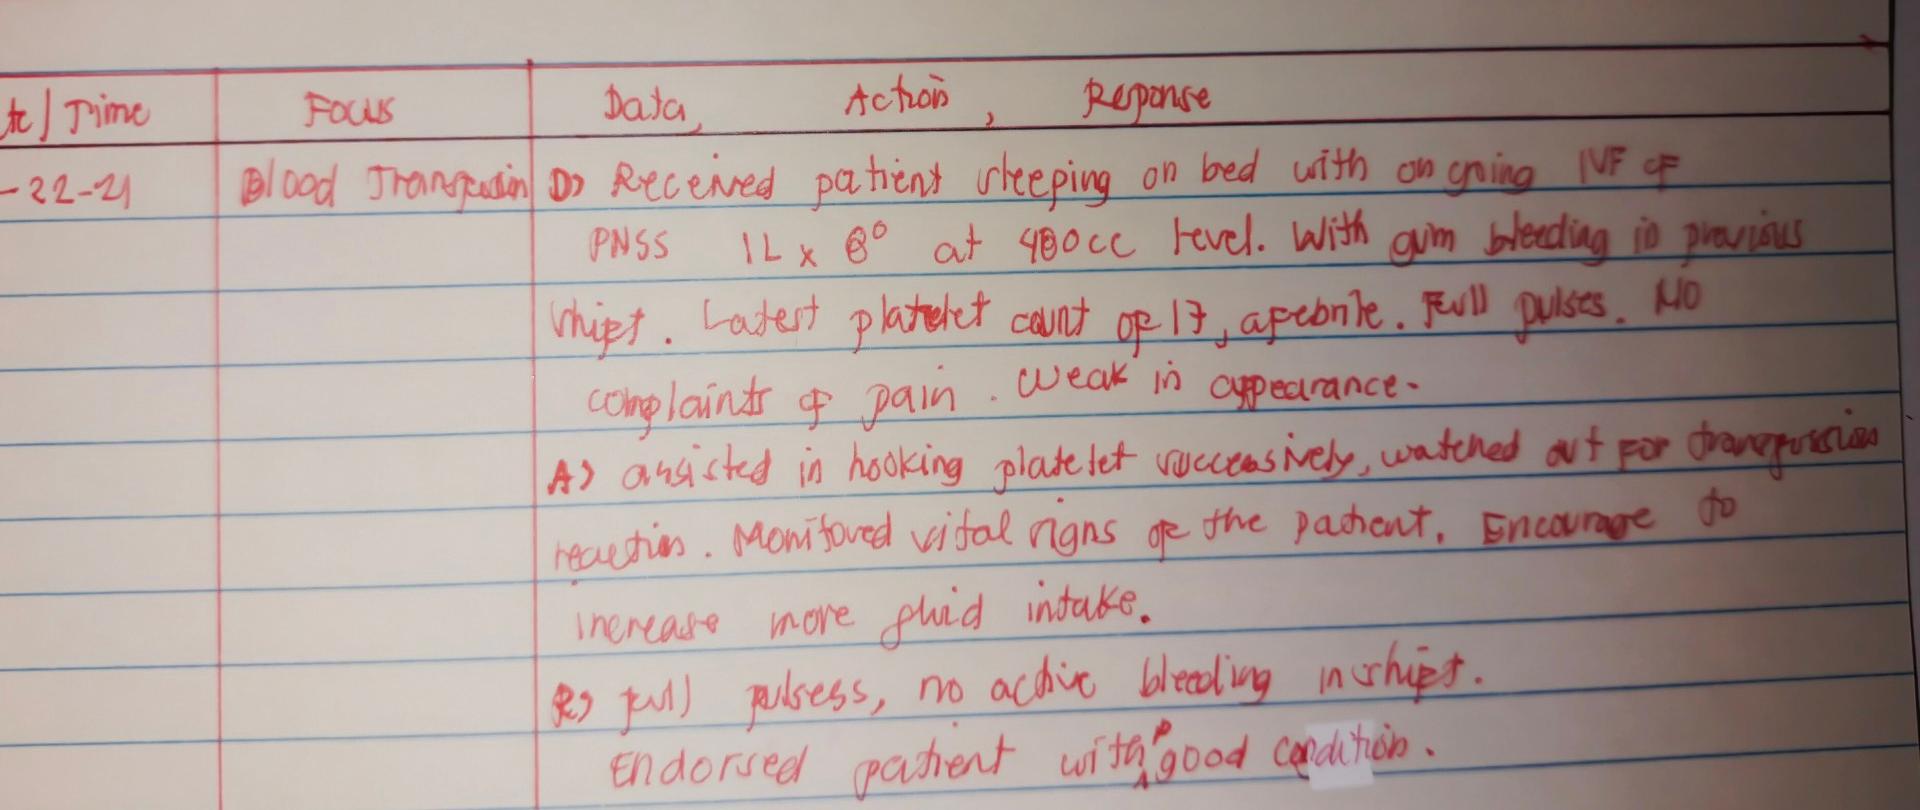 te / Time Focus Data, Action, Response
-22-21 Blood Transfusion D> Received patient sleeping on bed with ongoing IVF of
PNSS 1L x 8° at 480cc level. With gum bleeding in previous
shift. Latest platelet count of 17, afebrile. Full pulses. No
complaints of pain. Weak in appearance.
A> assisted in hooking platelet successively, watched out for transfusion
reaction. Monitored vital signs of the patient. Encourage to
increase more fluid intake.
R> full pulsess, no active bleeding in shift.
Endorsed patient with good condition.